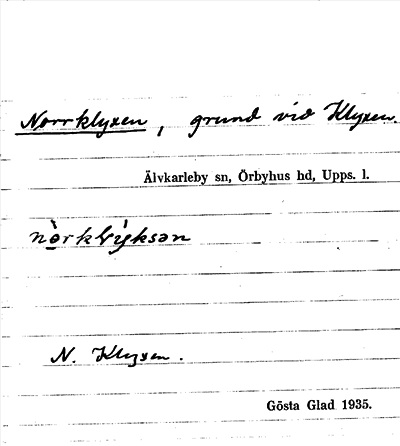 Norrklyxen, grund vid Klyxen.
Älvkarleby sn, Örbyhus hd, Upps. l.
nòrklýksən
N. Klyxen.
Gösta Glad 1935.